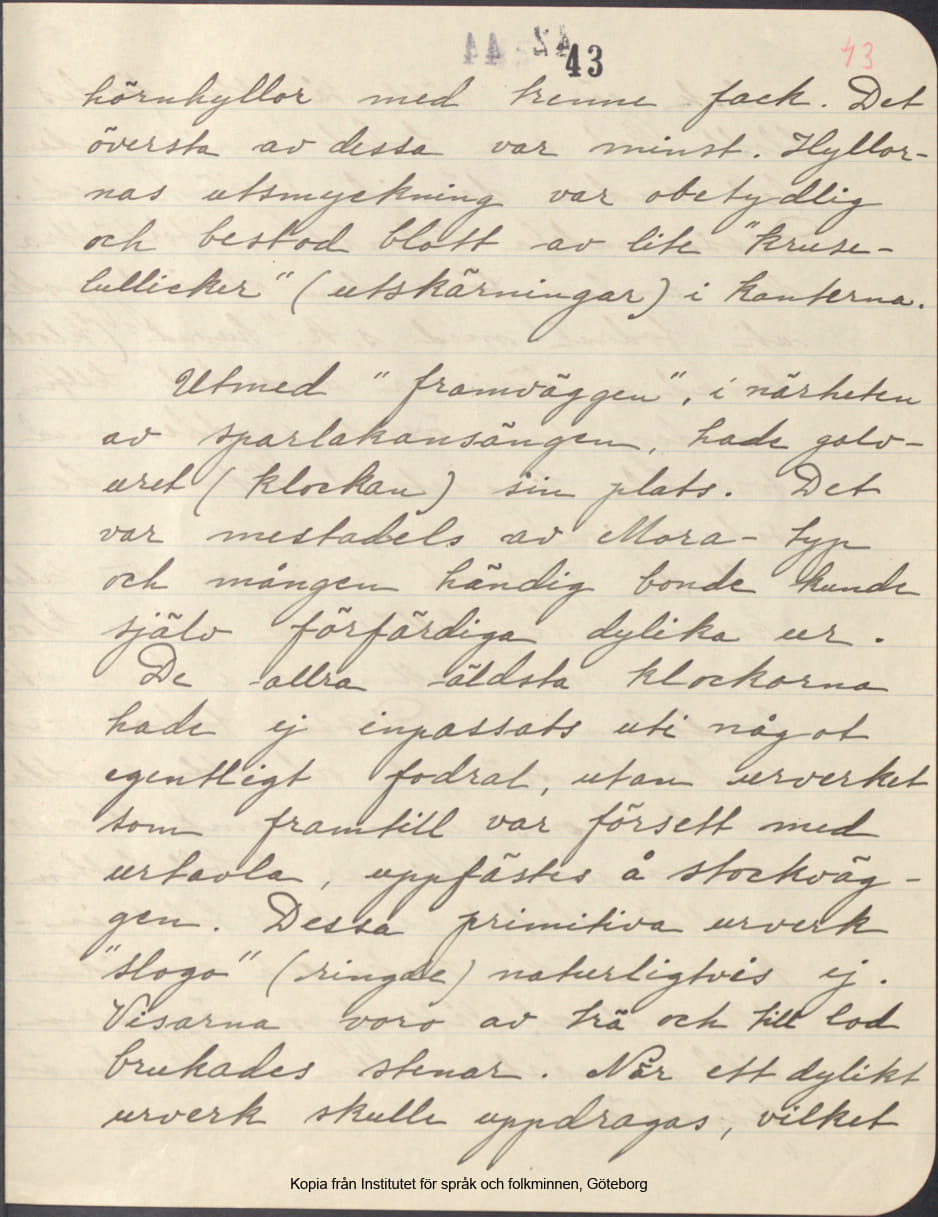 43
43
hörnhyllor med trenne fack. Det
översta av dessa var minst. Hyllor-
nas utsmyckning var obetydlig
och bestod blott av lite "kruse-
lullicker" (utskärningar) i kanterna.
Utmed "framväggen", i närheten
av sparlakansängen, hade golv-
uret (klockan) sin plats. Det
var mestadels av Mora-typ
och mången händig bonde kunde
själv förfärdiga dylika ur.
De allra äldsta klockorna
hade ej inpassats uti något
egentligt fodral, utan urverket
som framtill var försett med
urtavla, uppfästes å stockväg-
gen. Dessa primitiva urverk
"slogo" (ringde) naturligtvis ej.
Visarna voro av trä och till lod
brukades stenar. När ett dylikt
urverk skulle uppdragas, vilket
Kopia från Institutet för språk och folkminnen, Göteborg